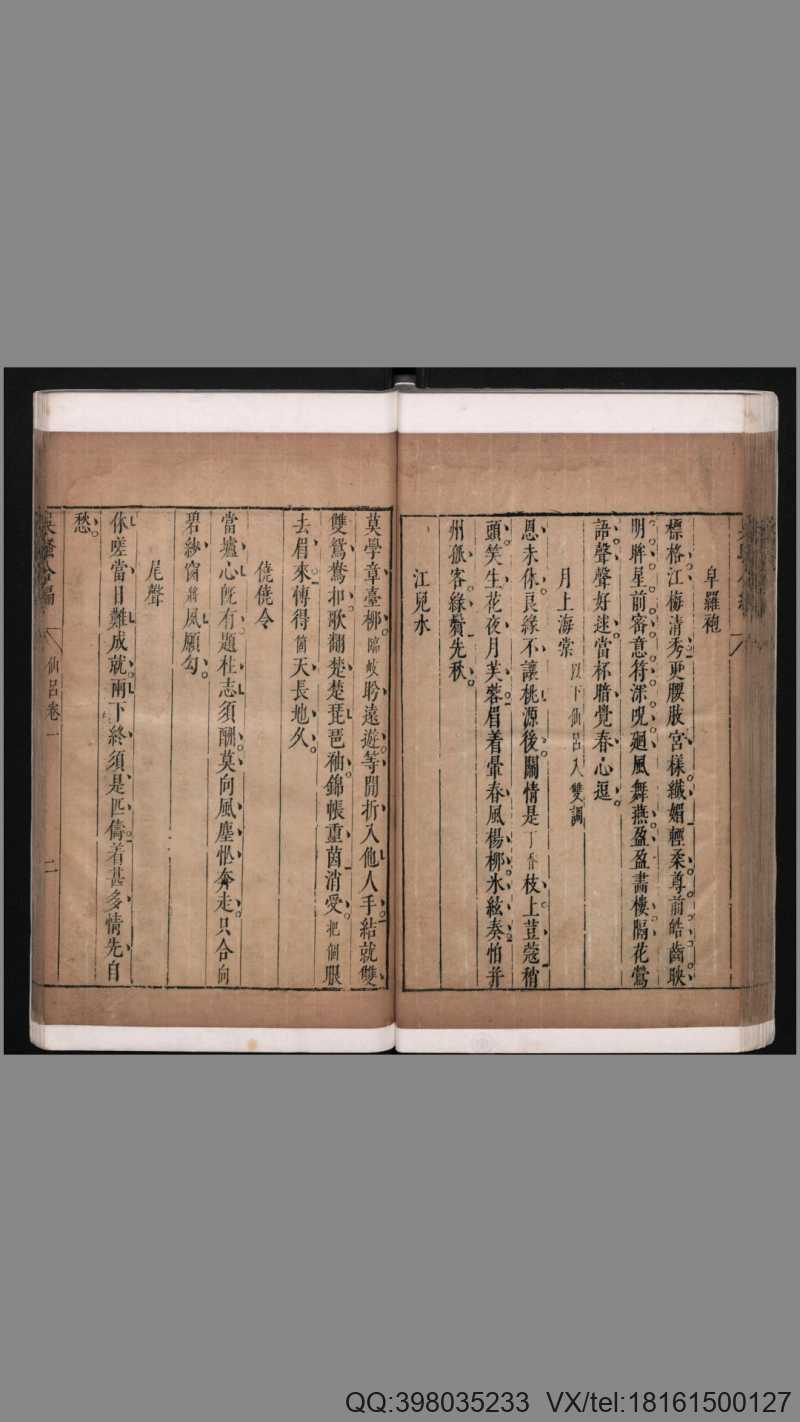 皐羅袍
標格江梅清秀更腰肢宮様纎媚輕柔尊前皓齒映
明眸星前審意符深呪廻風舞燕盈盈畵樓隔花鶯
語聲聲好逑當杯暗覺春心逗
月上海棠以下仙呂入雙調
恩未休良緣不讓桃源後關情是丁香枝上荳蔻稍
頭笑生花夜月芙蓉眉着暈春風楊柳氷絃奏怕并
州孤客綠鬢先秋
江兒水
莫學章臺柳臨岐聆遠遊等閒折入他人手結就雙
雙鴛鴦扣歌翻楚楚琵琶袖錦帳重茵消受把個眼
去眉來博得箇天長地久
僥僥令
當壚心旣有題柱志須酬莫向風塵怅奔走只合向
碧紗窗將風願勾
尾聲
休嗟當日難成就兩下終須是匹儔着甚多情先自
愁
吳騷合編
仙呂卷一
二
QQ:398035233 VX/tel:18161500127